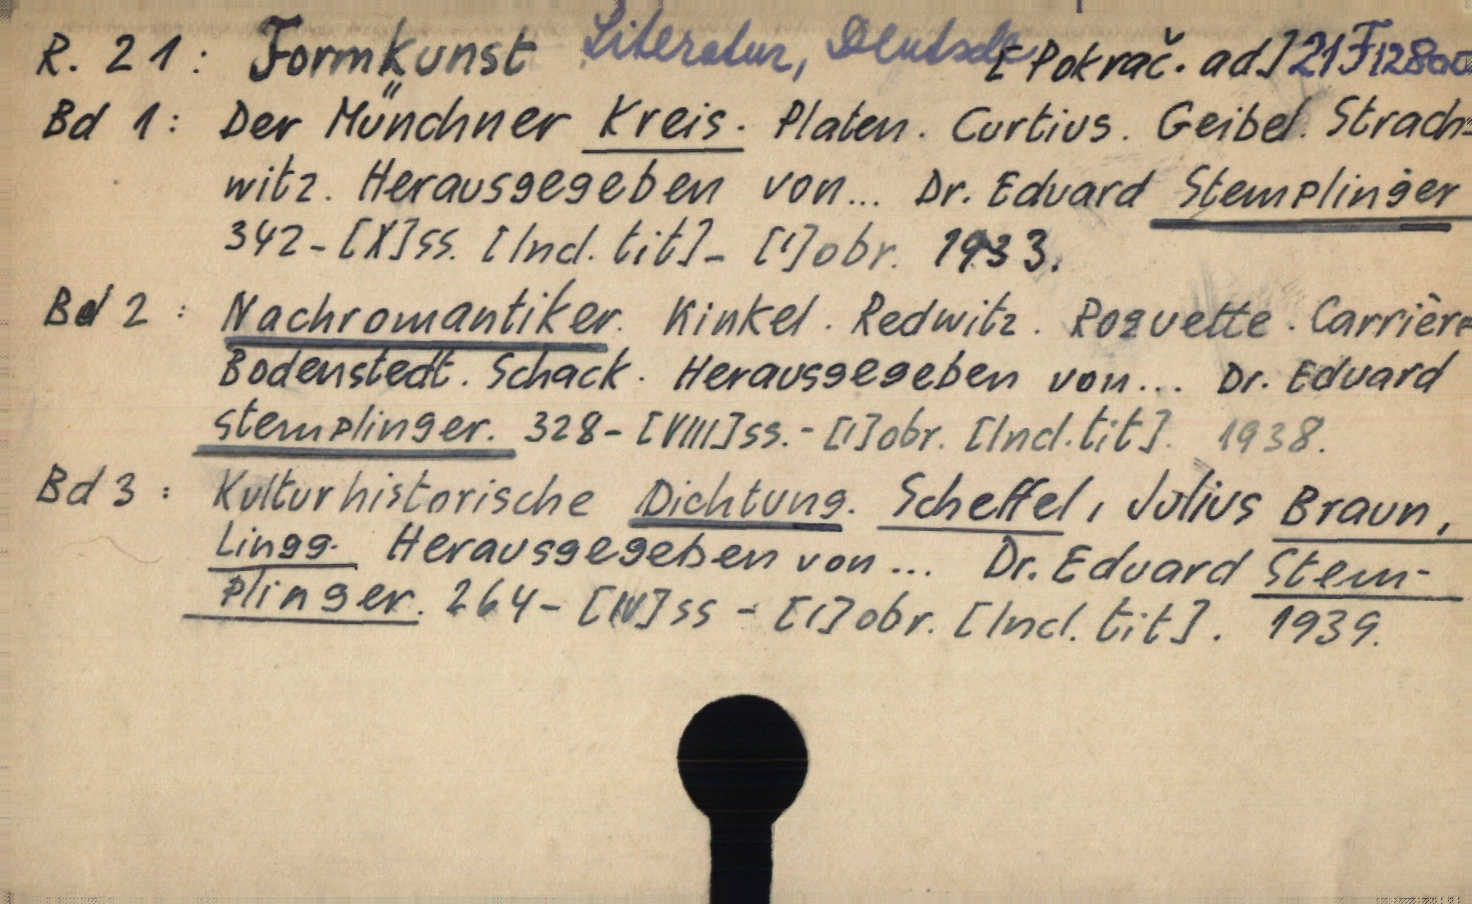 R. 21: Formkunst Literatur, Deutsche [Pokrač. ad] 21 F 12800
Bd 1: Der Münchner Kreis. Platen. Curtius. Geibel. Strach=
witz. Herausgegeben von... Dr. Eduard Stemplinger
342-[X]ss. [Incl. tit]- [1]obr. 1933.
Bd 2: Nachromantiker. Kinkel. Redwitz. Roquette. Carrière
Bodenstedt. Schack. Herausgegeben von... Dr. Eduard
Stemplinger. 328-[VIII]ss.-[1]obr. [Incl. tit]. 1938.
Bd 3: Kulturhistorische Dichtung. Scheffel, Julius Braun,
Lingg. Herausgegeben von... Dr. Eduard Stem-
plinger. 264-[IV]ss-[1]obr. [Incl. tit]. 1939.